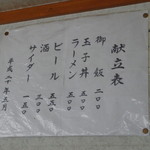 献立表
御飯 二〇〇
玉子丼 五〇〇
ラーメン 五〇〇
ビール 五五〇
酒 三〇〇
サイダー 一五〇
平成二十年三月